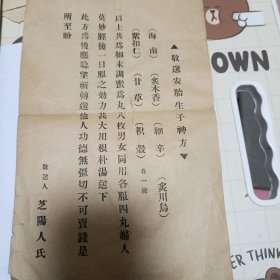 ▲敬送安胎生子轉方▲
(海南) (炙木香) (細辛) (炙川烏)
(紫扣仁) (甘草) (枳殼) 各一錢
以上共為細末調蜜為丸八枚男女同用各服四丸婦人
莫妙經後一日服之効力甚大用根朴湯送下
此方為後應敬望祈轉送他人功德無彊切不可賣錢是
所至盼
敬送人 芝陽人氏
OWN
THER
THINK